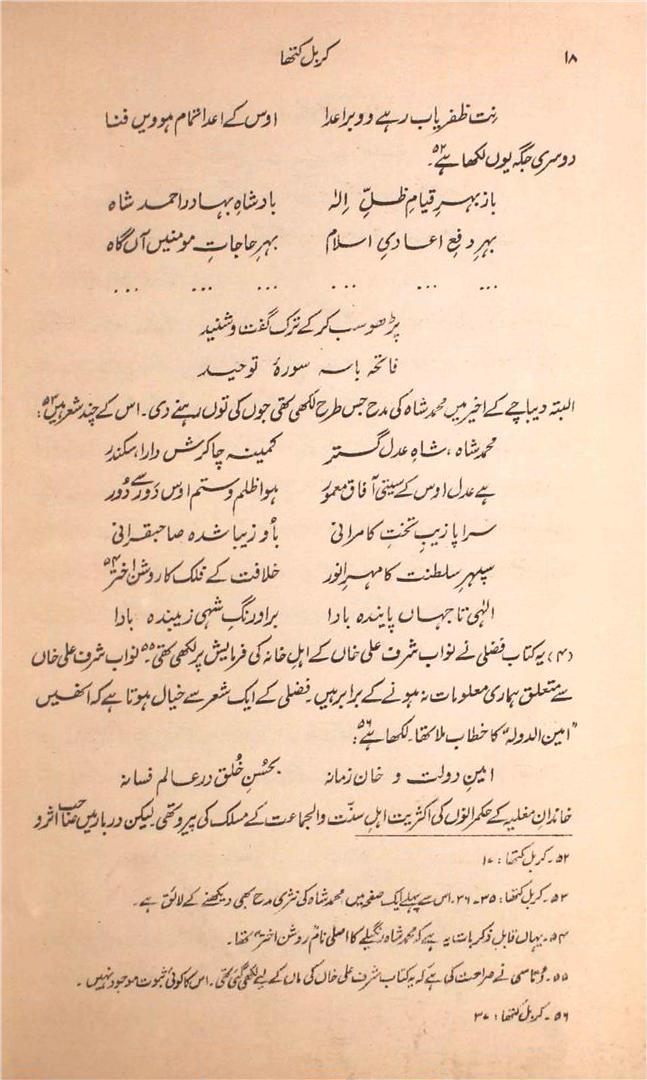 ۱۸ کربل کتھا
نِت ظفریاب رہے وو بر اعدا اوس کے اعدا تمام ہوویں فنا
دوسری جگہ یوں لکھا ہے۵۲۔
باز بہرِ قیامِ ظلِّ اِلٰہ بادشاہِ بہادر احمد شاہ
بہرِ دفعِ اعادیِ اسلام بہرِ حاجاتِ مومنیں آں گاہ
... ... ... ... ... ...
پڑھو سب کر کے ترک گفت و شنید
فاتحہ باسہ سورۂ توحید
البتہ دیباچے کے اخیر میں محمد شاہ کی مدح جس طرح لکھی تھی جوں کی توں رہنے دی۔ اس کے چند شعر ہیں۵۳:
محمد شاہ، شاہِ عدل گستر کمینہ چاکرش دارا، سکندر
ہے عدل اوس کے سیتی آفاق معمور ہوا ظلم و ستم اوس دَور سے دُور
سراپا زیبِ تختِ کامرانی بأو زیبا شدہ صاحبقرانی
سپہرِ سلطنت کا مہرِ انور خلافت کے فلک کا روشن اختر۵۴
الٰہی تا جہاں پایندہ بادا بر اورنگِ شہی زیبندہ بادا
(۴) یہ کتاب فضلی نے نواب شرف علی خاں کے اہلِ خانہ کی فرمایش پر لکھی تھی۵۵۔ نواب شرف علی خاں
سے متعلق ہماری معلومات نہ ہونے کے برابر ہیں۔ فضلی کے ایک شعر سے خیال ہوتا ہے کہ انھیں
”امین الدولہ“ کا خطاب ملا تھا۔ لکھا ہے۵۶:
امینِ دولت و خانِ زمانہ بحُسنِ خُلق در عالم فسانہ
خاندانِ مغلیہ کے حکمرانوں کی اکثریت اہلِ سنّت والجماعت کے مسلک کی پیرو تھی۔ لیکن دربار میں صاحبِ اثر و
۵۲۔ کربل کتھا: ۱۷
۵۳۔ کربل کتھا: ۳۵۔۳۶۔ اس سے پہلے ایک صفحے میں محمد شاہ کی نثری مدح بھی دیکھنے کے لائق ہے۔
۵۴۔ یہاں قابلِ ذکر بات یہ ہے کہ محمد شاہ رنگیلے کا اصلی نام ”روشن اختر“ تھا۔
۵۵۔ دُتاسی نے صراحت کی ہے کہ یہ کتاب شرف علی خاں کی ماں کے لیے لکھی گئی تھی۔ اس کا کوئی ثبوت موجود نہیں۔
۵۶۔ کربل کتھا: ۳۷